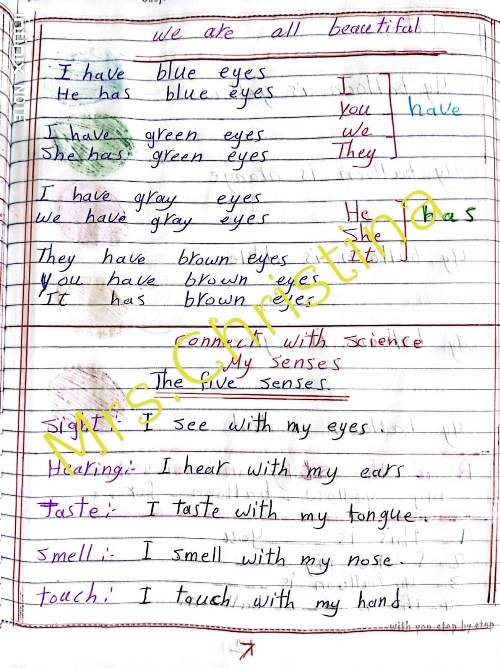 we are all beautiful
I have blue eyes
He has blue eyes
I have green eyes
She has green eyes
I
you
we
They
have
I have gray eyes
we have gray eyes
He
She
It
has
They have brown eyes
you have brown eyes
It has brown eyes
Connect with science
My senses
The five senses.
sight:- I see with my eyes.
Hearing:- I hear with my ears.
Taste:- I taste with my tongue.
smell:- I smell with my nose.
touch: I touch with my hand.
with you step by step
Mrs.Christina